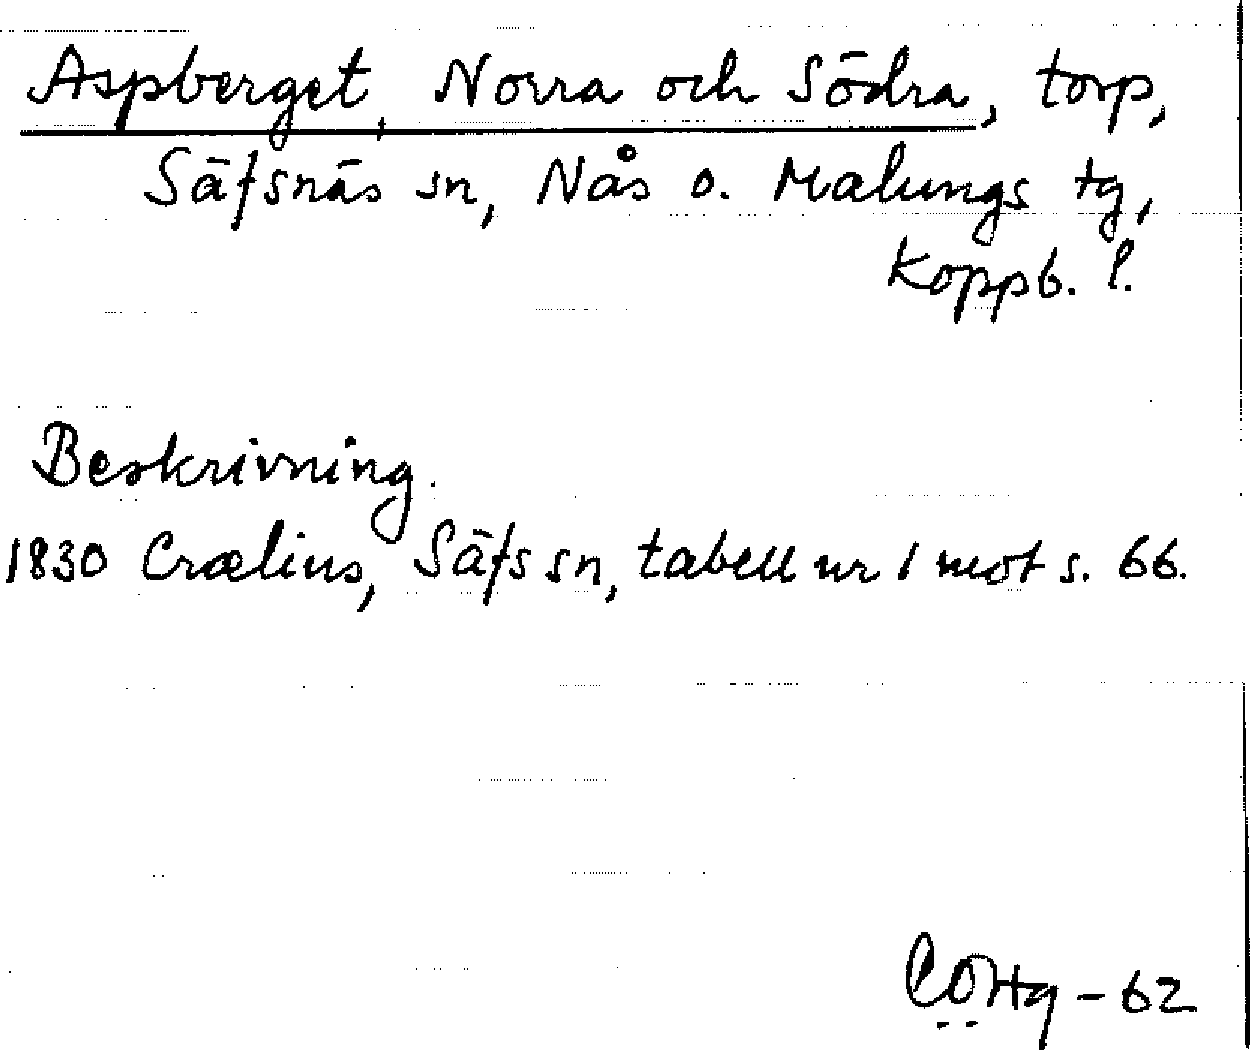 Aspberget, Norra och Södra, torp,
Säfsnäs sn, Nås o. Malungs tg,
Koppb. l.
Beskrivning.
1830 Crælius, Säfs sn, tabell nr 1 mot s. 66.
-62